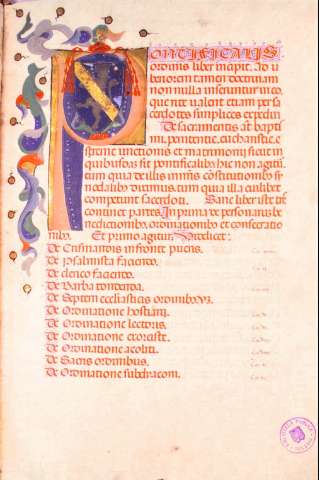 PONTIFICALIS
ordinis liber incipit. ad v
beriorem tamen doctrinam
non nulla inseruntur in eo.
que nec valent etiam per sa
cerdotes simplices expediri
De sacramentis aut bapti
smi. penitentie. eucharistie. e
xtreme unctionis et matrimonij sicut in
quibus fas sit pontificalibus hic non agitur
tum quia de illis in nris ostitutionibus sy
nodalibus diximus. tum quia illa cuilibet
competunt sacerdoti. Sane liber iste tres
continet partes. In prima de personarum be
nedictionibus. ordinationibus et consecratio
nibus. Et primo agitur. Videlicet:
De Crismandis in fronte pueris.
De psalmista faciendo.
De clerico faciendo.
De Barba tondenda.
De Septem ecclesiasticis ordinibus.
De Ordinatione hostiarij.
De Ordinatione lectoris.
De Ordinatione exorciste.
De Ordinatione acoliti.
De Sacris ordinibus.
De Ordinatione subdiaconi.